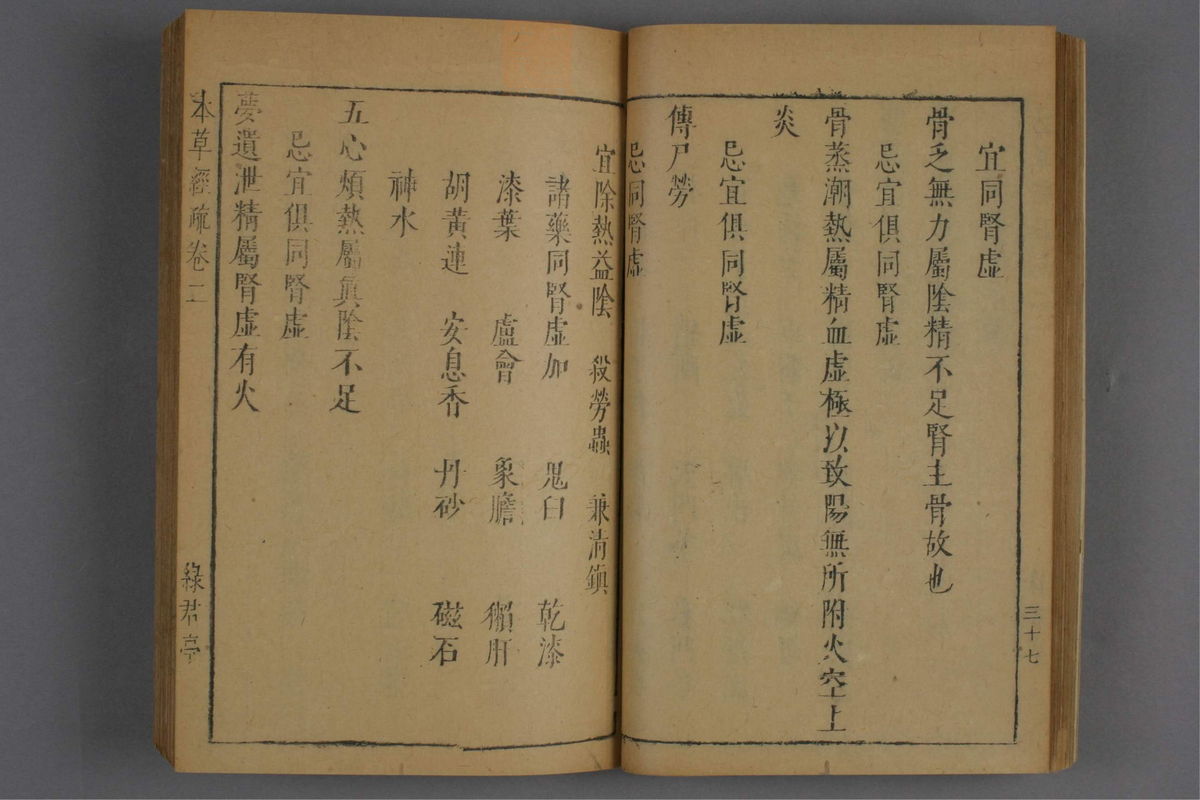 宜同腎虛
骨乏無力屬陰精不足腎主骨故也
忌宜俱同腎虛
骨蒸潮熱屬精血虛極以致陽無所附火空上
炎
忌宜俱同腎虛
傳尸勞
忌同腎虛
三十七
宜除熱益陰 殺勞蟲 兼清鎮
諸藥同腎虛加 鬼臼 乾漆
漆葉 盧會 象膽 獺肝
胡黃連 安息香 丹砂 磁石
神水
五心煩熱屬眞陰不足
忌宜俱同腎虛
夢遺泄精屬腎虛有火
本草經疏卷二 綠君亭